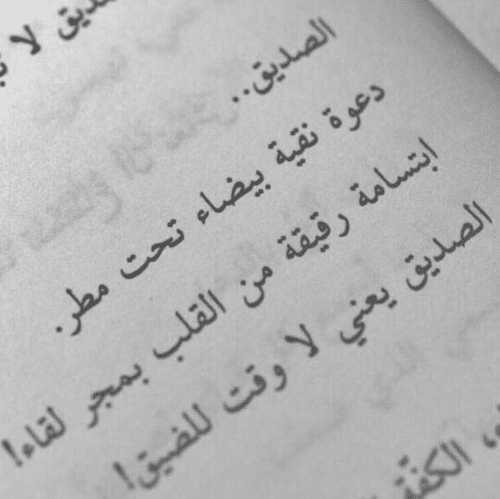 الصديق لا
الصديق..
دعوة نقية بيضاء تحت مطر.
ابتسامة رقيقة من القلب بمجر لقاء!
الصديق يعني لا وقت للضيق!
الكفّة